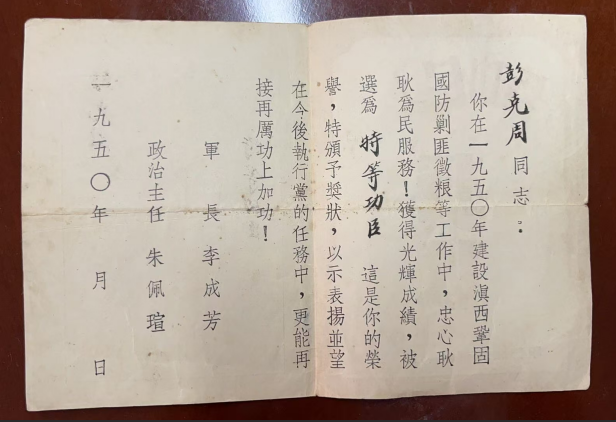 彭克周同志：
你在一九五〇年建設滇西鞏固
國防剿匪徵粮等工作中，忠心耿
耿爲民服務！獲得光輝成績，被
選爲 特等功臣 這是你的榮
譽，特頒予獎狀，以示表揚並望
在今後執行黨的任務中，更能再
接再厲功上加功！
軍 長 李成芳
政治主任 朱佩瑄
一九五〇年 月 日